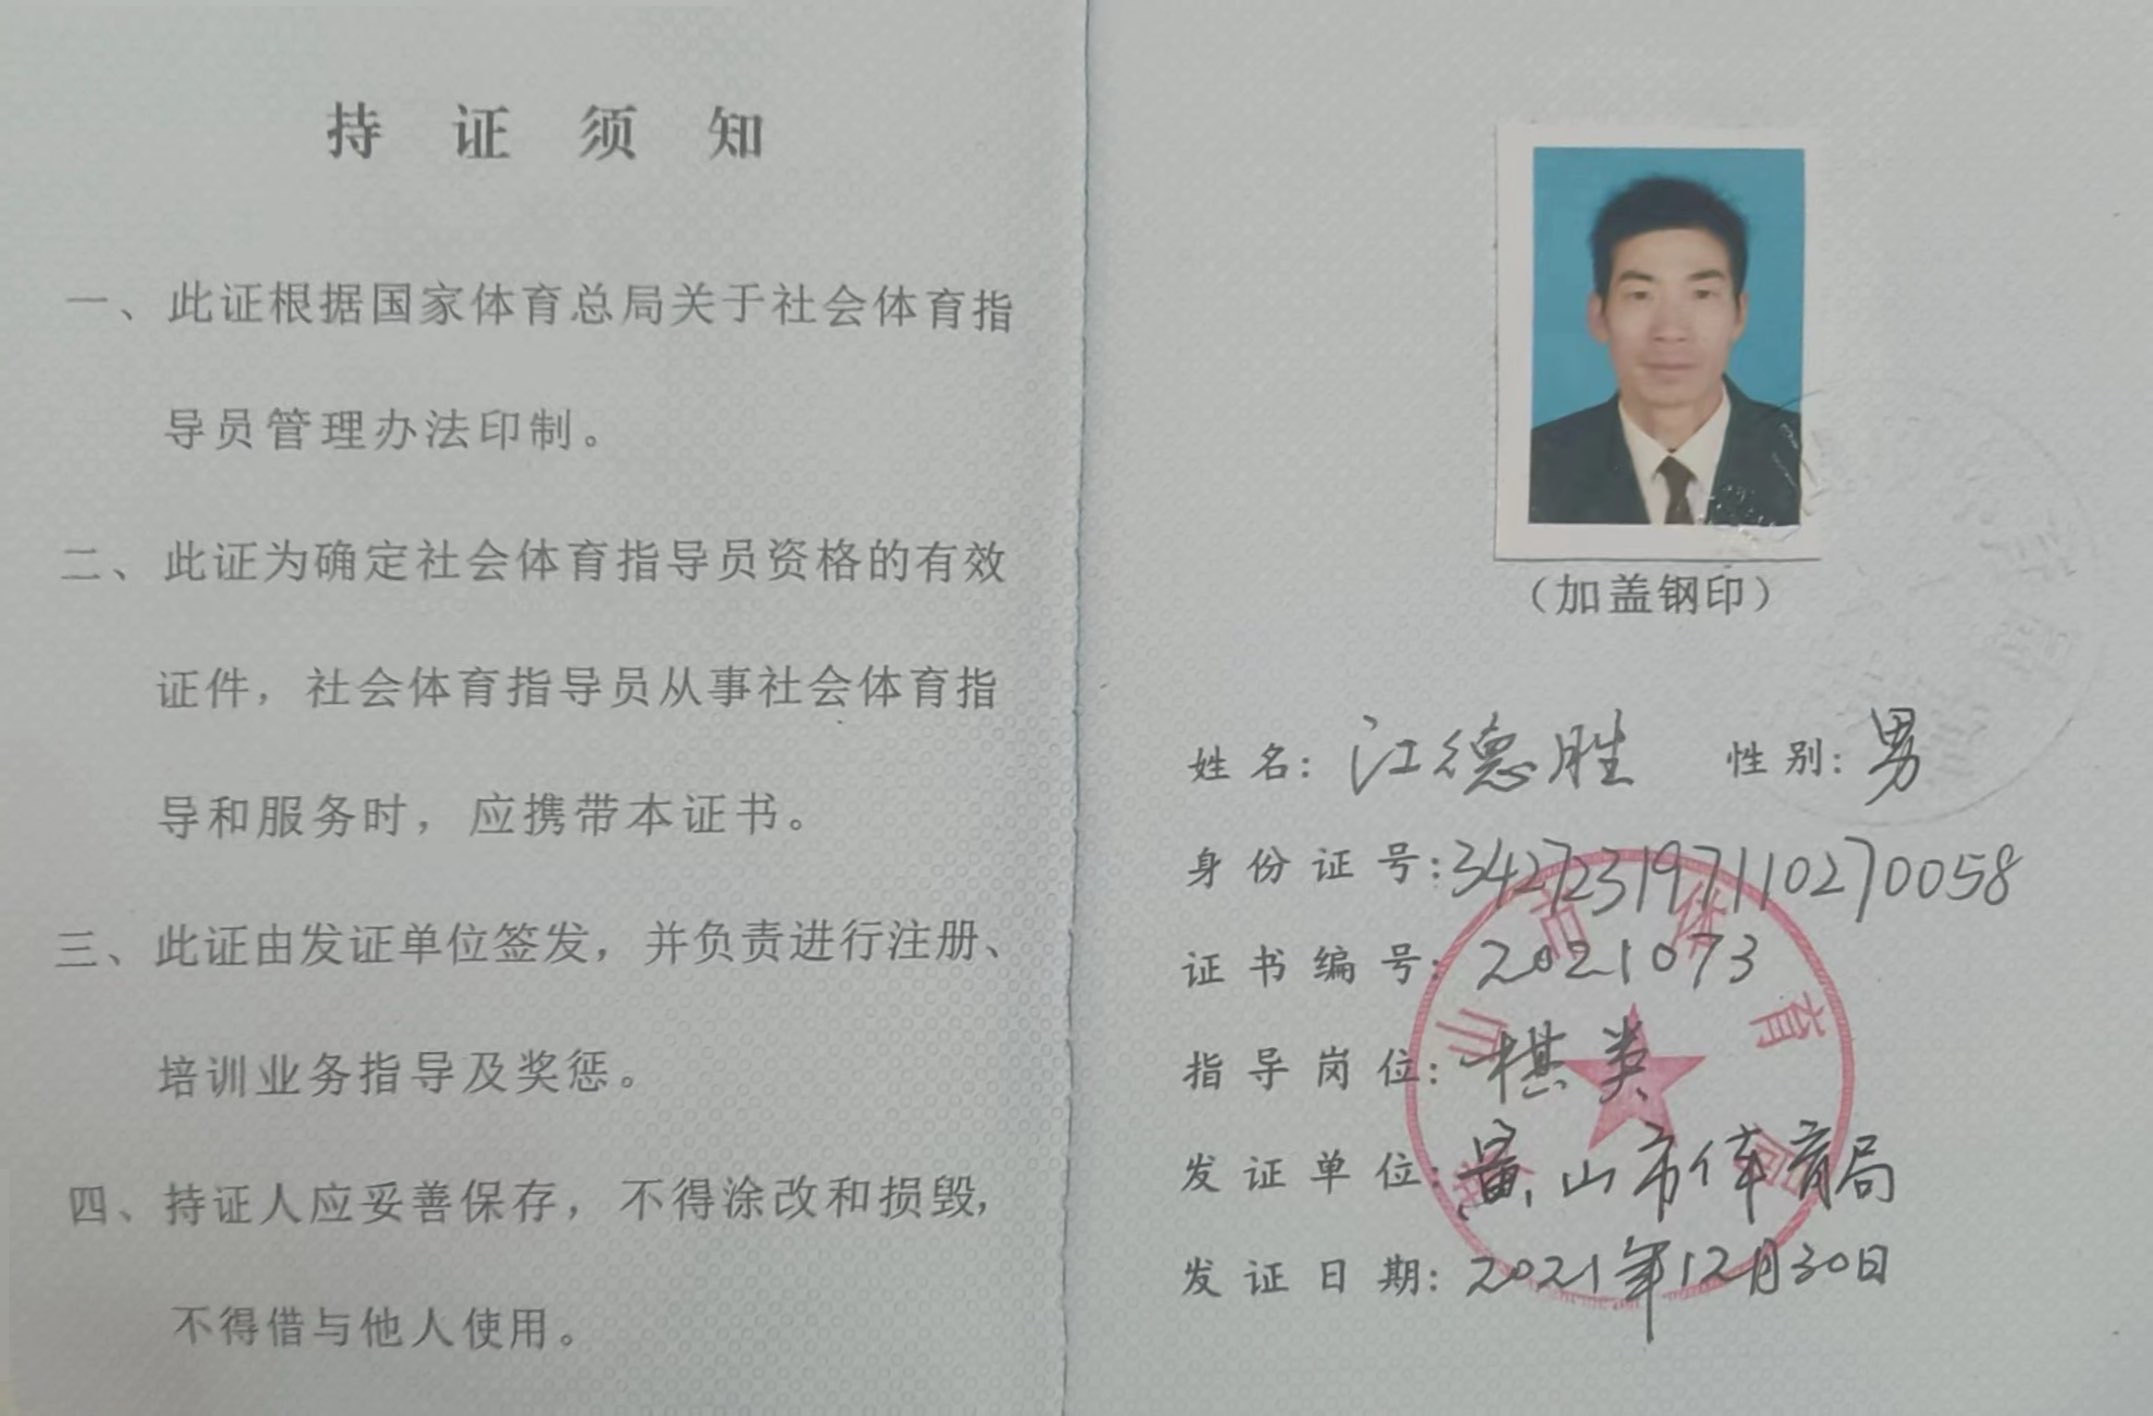 持证须知
一、此证根据国家体育总局关于社会体育指
导员管理办法印制。
二、此证为确定社会体育指导员资格的有效
证件，社会体育指导员从事社会体育指
导和服务时，应携带本证书。
三、此证由发证单位签发，并负责进行注册、
培训业务指导及奖惩。
四、持证人应妥善保存，不得涂改和损毁，
不得借与他人使用。
（加盖钢印）
姓名：江德胜 性别：男
身份证号：342723197110270058
证书编号：2021073
指导岗位：棋类
发证单位：黄山市体育局
发证日期：2021年12月30日
黄山市体育局